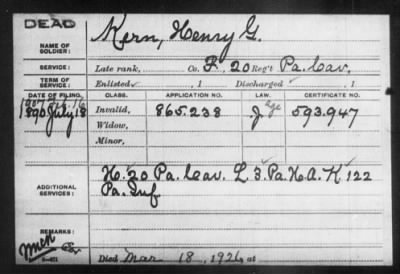 DEAD
NAME OF SOLDIER: Kern, Henry G.
SERVICE: Late rank, Co. F, 20 Reg't Pa. Cav.
TERM OF SERVICE: Enlisted , 1 Discharged , 1
DATE OF FILING. CLASS. APPLICATION NO. LAW. CERTIFICATE NO.
1907
1890 July 18 Invalid, 865.238 J age 593.947
Widow,
Minor,
ADDITIONAL SERVICES: 20 Pa. Cav. L 3. Pa. H.A. K 122
Pa. Inf
REMARKS:
Died Mar 18, 1926, at